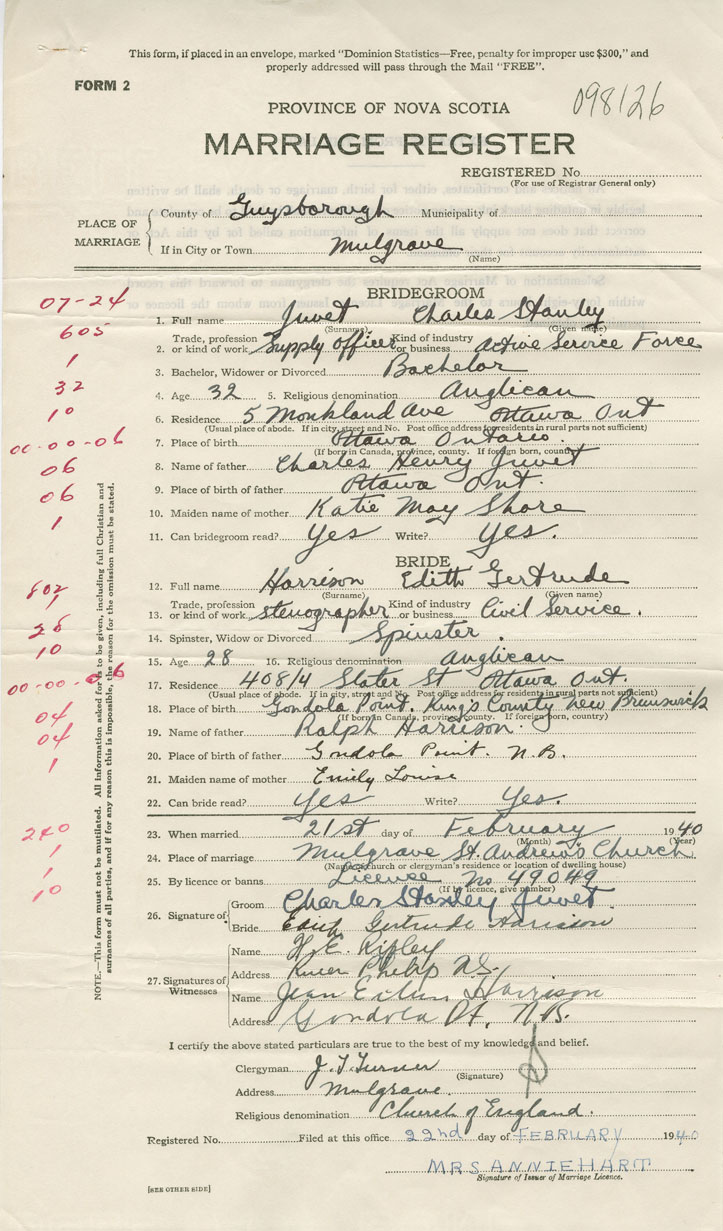 This form, if placed in an envelope, marked "Dominion Statistics—Free, penalty for improper use $300," and
properly addressed will pass through the Mail "FREE".
FORM 2
098126
PROVINCE OF NOVA SCOTIA
MARRIAGE REGISTER
REGISTERED No.
(For use of Registrar General only)
PLACE OF MARRIAGE
County of Guysborough Municipality of
If in City or Town Mulgrave
(Name)
BRIDEGROOM
07-24
1. Full name Juvet Charles Stanley
(Surname) (Given name)
605
2. Trade, profession or kind of work Supply Officer Kind of industry or business Active Service Force
1
3. Bachelor, Widower or Divorced Bachelor
32
4. Age 32 5. Religious denomination Anglican
10
6. Residence 5 Monkland Ave Ottawa Ont
(Usual place of abode. If in city, street and No. Post office address for residents in rural parts not sufficient)
00-00-06
7. Place of birth Ottawa Ontario.
(If born in Canada, province, county. If foreign born, country)
06
8. Name of father Charles Henry Juvet
06
9. Place of birth of father Ottawa Ont.
10. Maiden name of mother Katie May Shore
1
11. Can bridegroom read? Yes Write? Yes.
BRIDE
12. Full name Harrison Edith Gertrude
(Surname) (Given name)
13. Trade, profession or kind of work stenographer Kind of industry or business Civil Service.
14. Spinster, Widow or Divorced Spinster.
10
15. Age 28 16. Religious denomination Anglican
17. Residence 408/4 Slater St Ottawa Ont.
(Usual place of abode. If in city, street and No. Post office address for residents in rural parts not sufficient)
04
18. Place of birth Gondola Point. King's County New Brunswick
(If born in Canada, province, county. If foreign born, country)
04
19. Name of father Ralph Harrison.
1
20. Place of birth of father Gondola Point. N.B.
21. Maiden name of mother Emily Louise
22. Can bride read? Yes Write? Yes.
240
23. When married 21st day of February 1940
(Month) (Year)
1
24. Place of marriage Mulgrave St. Andrew's Church
(Name church or clergyman's residence or location of dwelling house)
1
25. By licence or banns Licence No 49049
(If by licence, give number)
10
26. Signature of
Groom Charles Stanley Juvet.
Bride Edith Gertrude Harrison
27. Signatures of Witnesses
Name H. E. Ripley
Address River Philip N.S.
Name Jean Harrison
Address Gondola Pt, N.B.
NOTE.—This form must not be mutilated. All information asked for is to be given, including full Christian and
surnames of all parties, and if for any reason this is impossible, the reason for the omission must be stated.
I certify the above stated particulars are true to the best of my knowledge and belief.
Clergyman J. T. Turner
(Signature)
Address Mulgrave.
Religious denomination Church of England.
Registered No. Filed at this office 22nd day of FEBRUARY 1940
MRS ANNIE HART
Signature of Issuer of Marriage Licence.
[SEE OTHER SIDE]